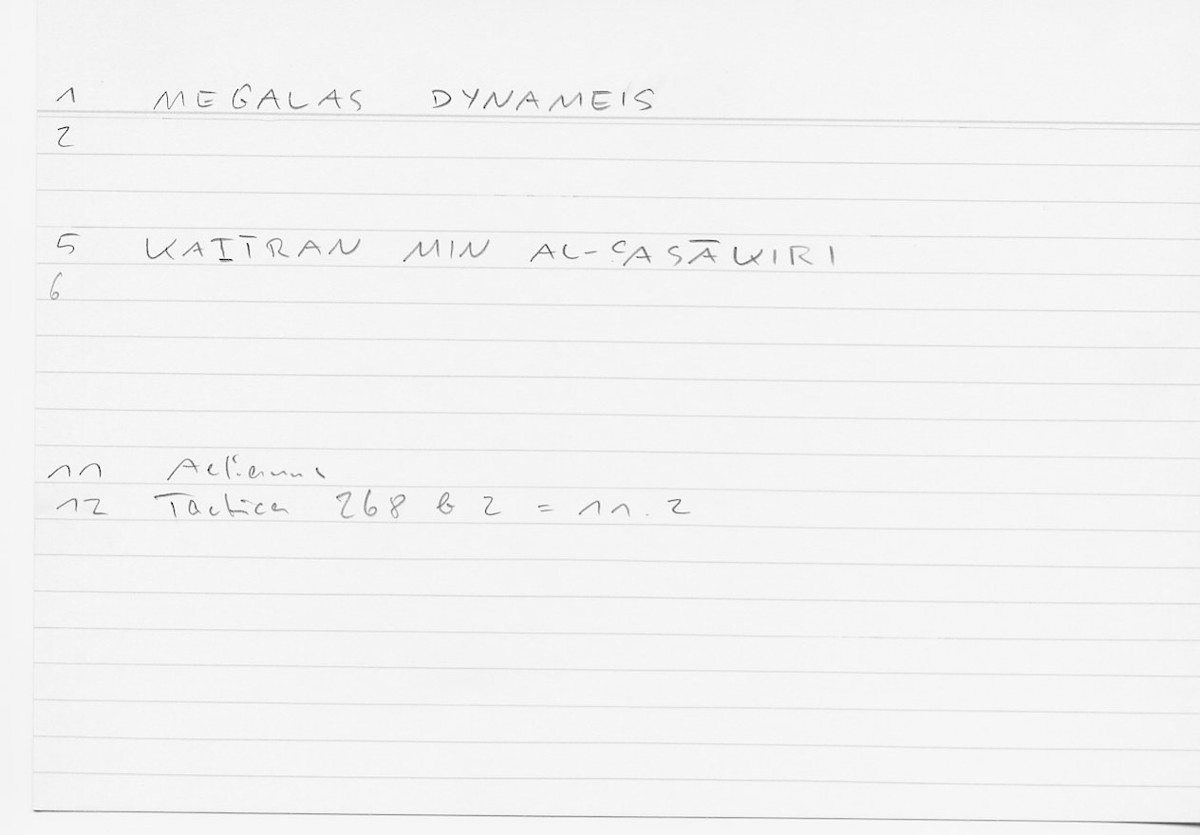 1 MEGALAS DYNAMEIS
2
5 KAṮĪRAN MIN AL-ʿASĀKIRI
6
11 Aelianus
12 Tactica 268 b 2 = 11.2